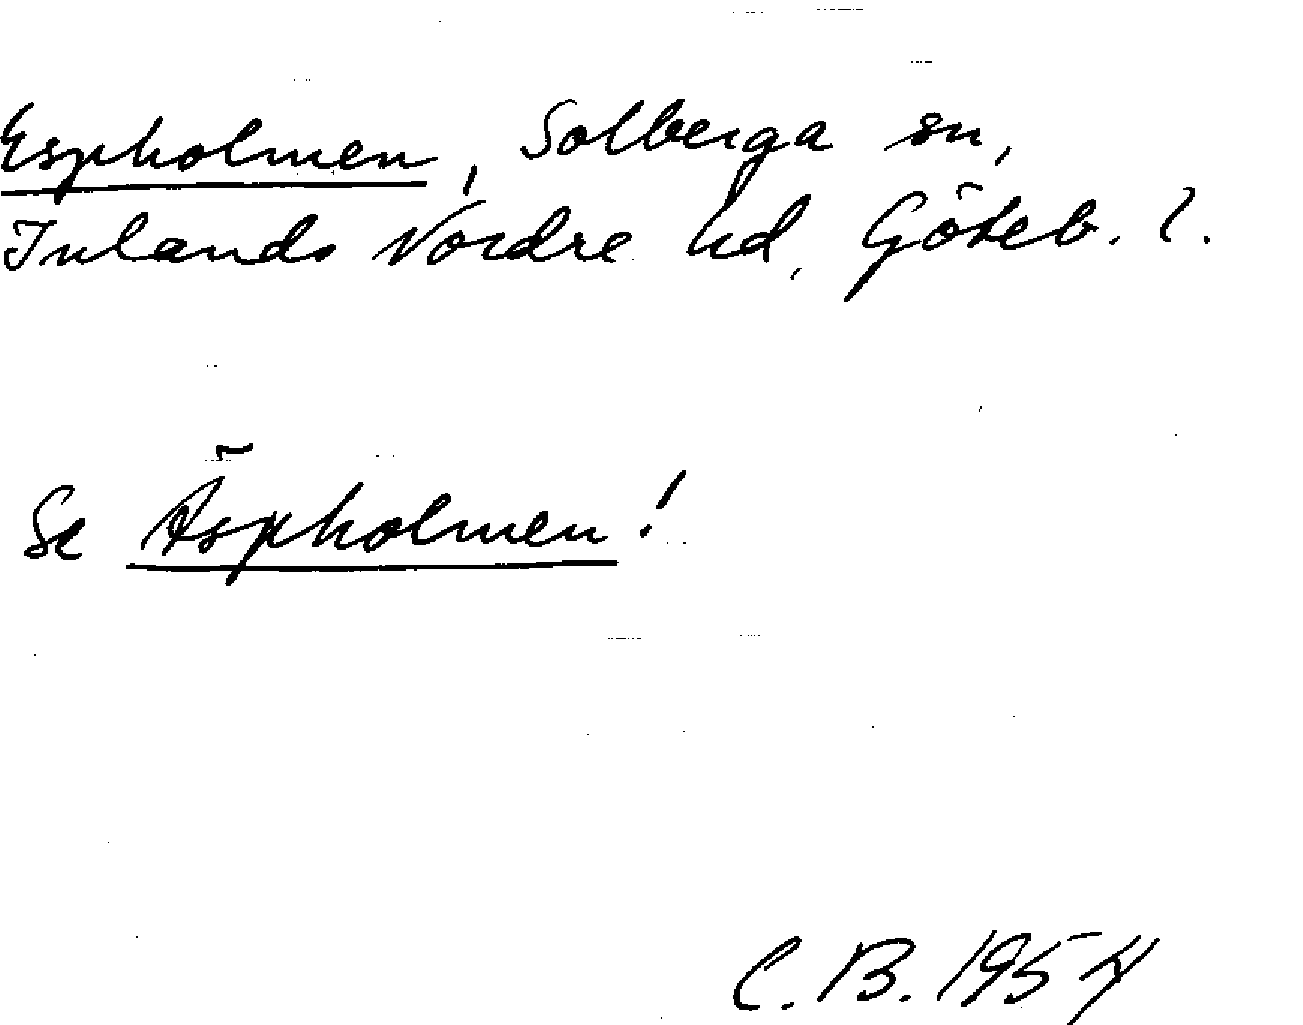 Espholmen, Solberga sn,
Inlands Nordre hd, Göteb. l.
Se Äspholmen!
C. B. 1954